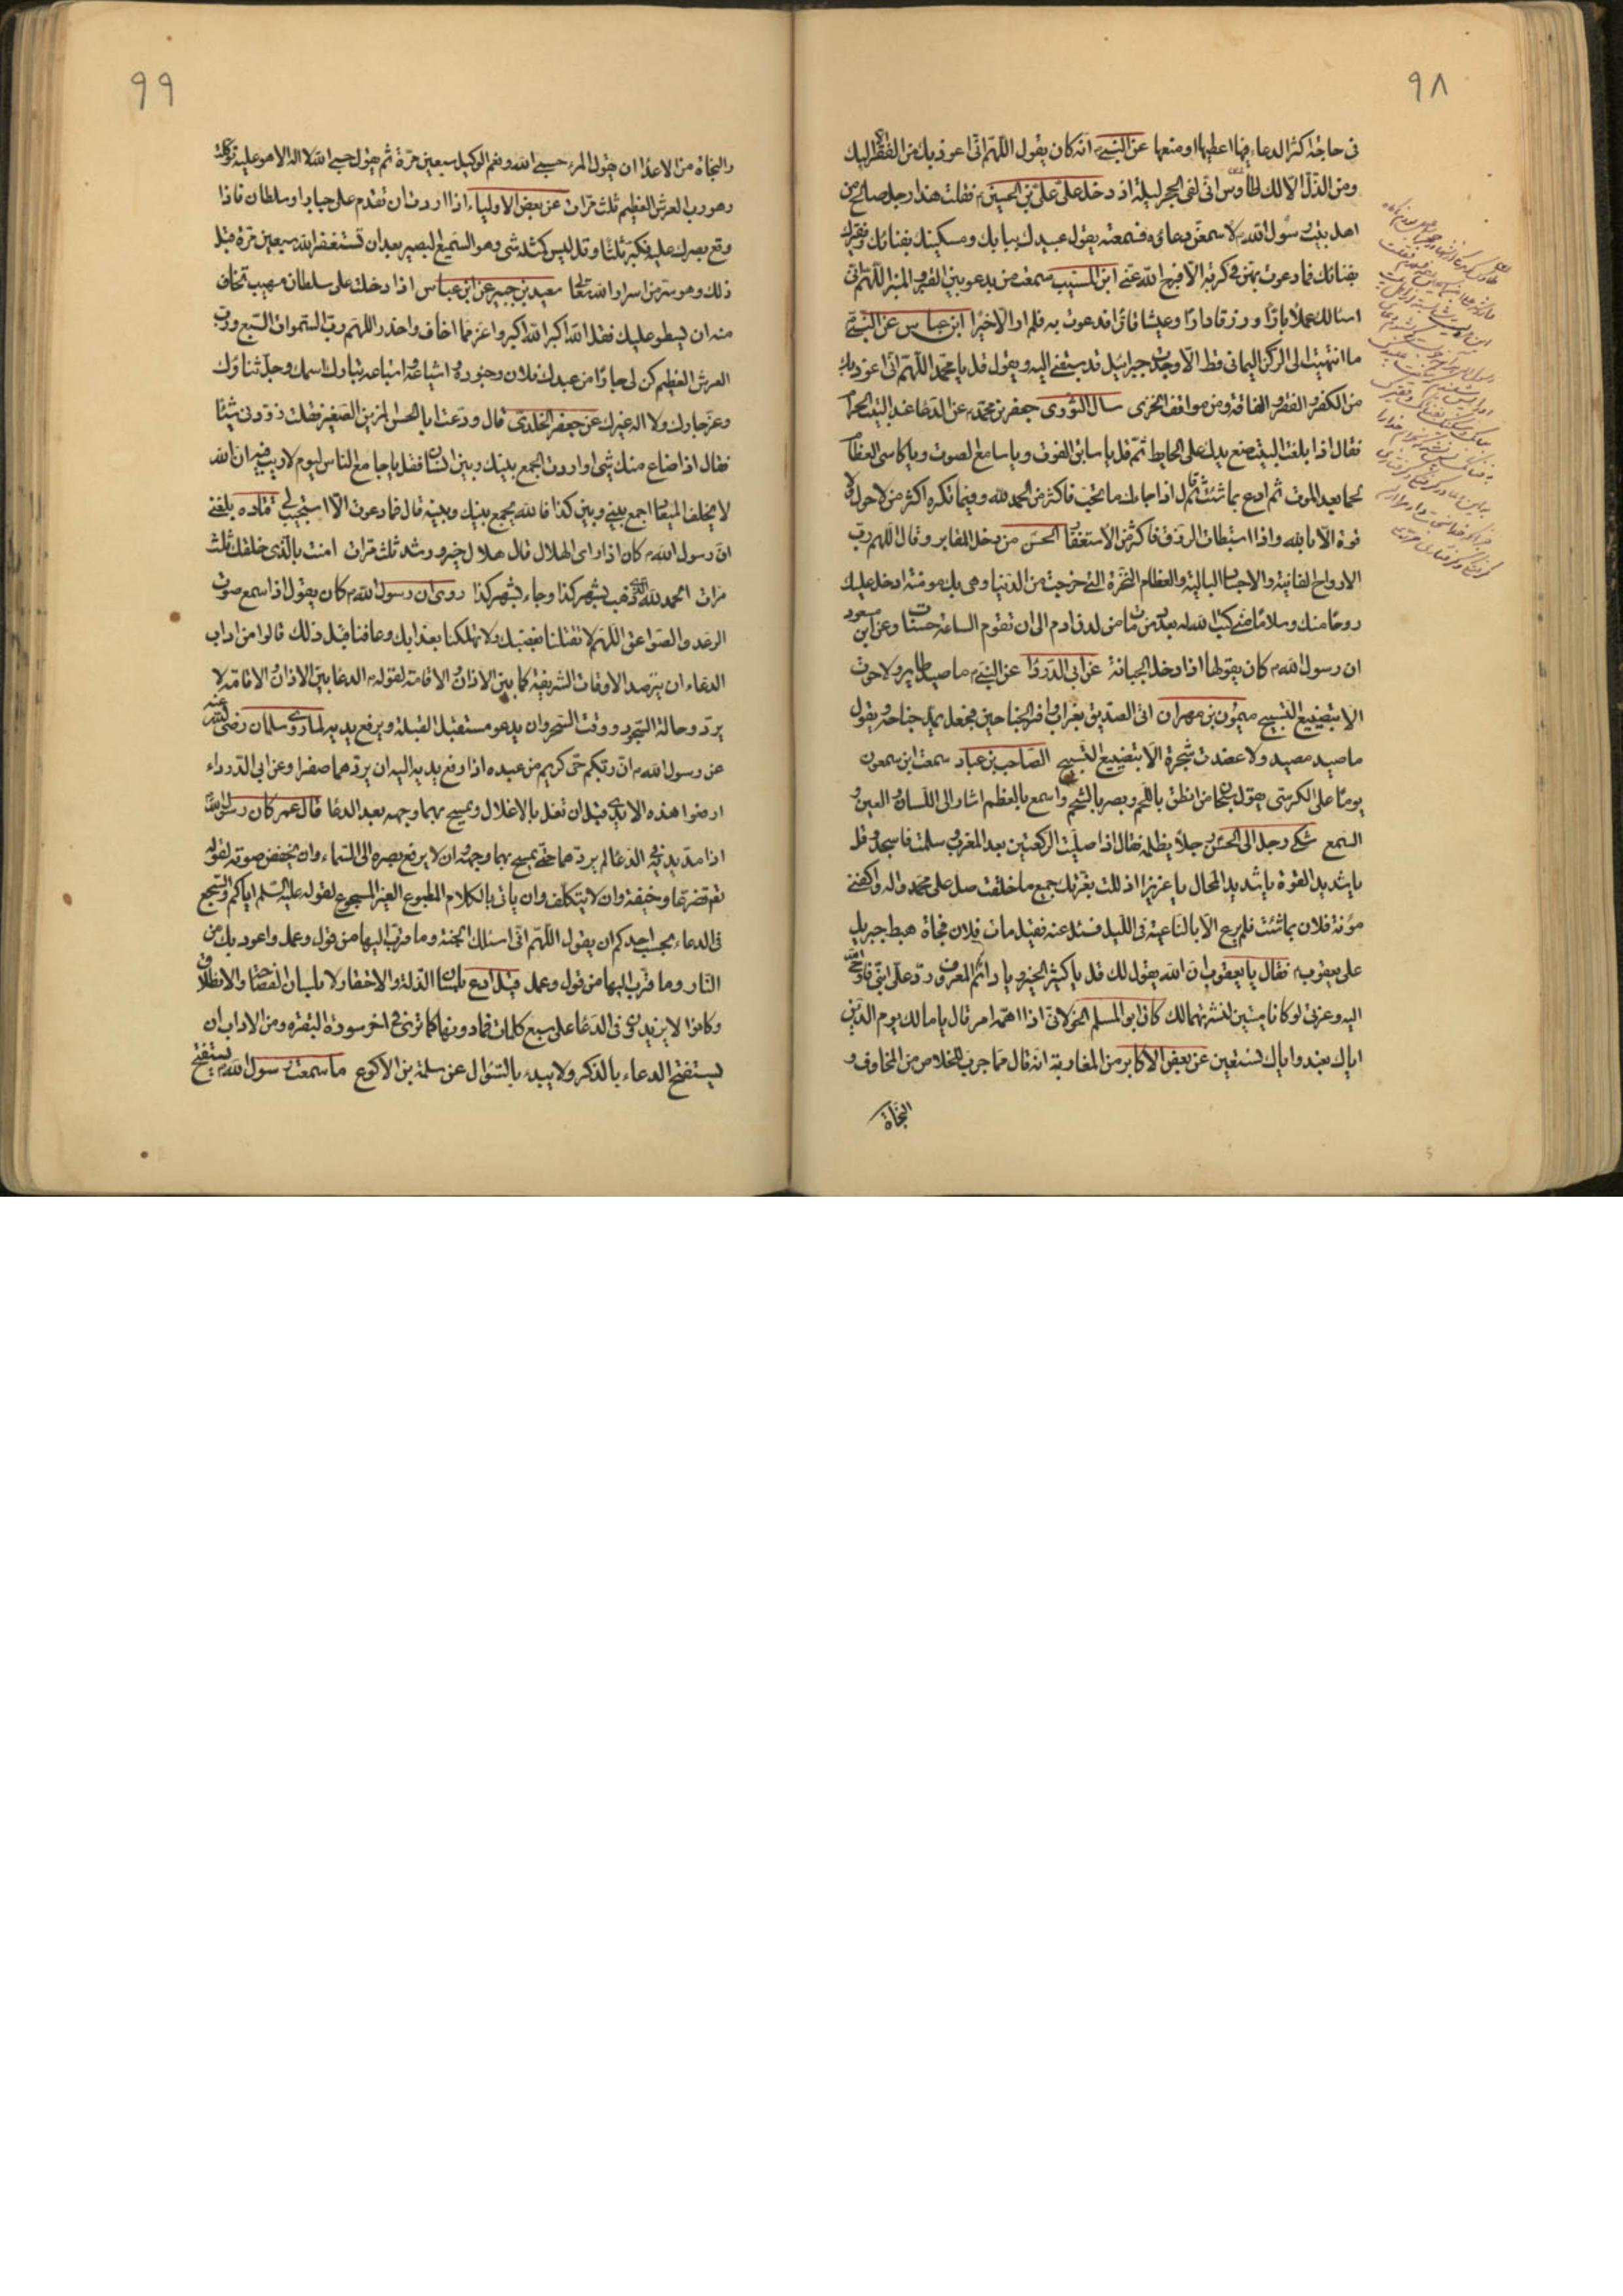 ٩٨
فى حاجة اكثر الدعاء فيها اعطيها او منعها عن النبى انه كان يقول اللهم انى اعوذ بك من الفقر الا اليك
ومن الذل الا لك طاوس انى لفى الحجر ليلة اذ دخل على على بن الحسين فقلت هذا رجل صالح من
اهل بيت رسول الله لاسمعن دعاؤه فسمعته يقول عبيدك ببابك ومسكينك بفنائك وفقيرك
بفنائك فما دعوت بهن فى كربة الا فرج الله عنى ابن المسيب سمعت من يدعو بين القبر والمنبر اللهم انى
اسئالك عملا بارا ورزقا دارا وعيشا قارا فدعوت به فلم ار الا خيرا ابن عباس عن النبى
ما انتهيت الى الركن اليمانى قط الا وجدت جبرائيل قد سبقنى اليه ويقول قل يا محمد اللهم انى اعوذ بك
من الكفر والفقر والفاقة ومن مواقف الخزى سال الثورى جعفر بن محمد عن الدعا عند البيت الحرام
فقال اذا بلغت البيت ضع يدك على الحايط ثم قل يا سابق الفوت ويا سامع الصوت ويا كاسى العظام
لحما بعد الموت ثم ادع بما شئت قال اذا جاءك ما تحب فاكثر من الحمد لله وفيما تكره اكثر من لا حول ولا
قوة الا بالله واذا استبطات الرزق فاكثر من الاستغفار الحسن من دخل المقابر وقال اللهم رب
الارواح الفانية والاجساد البالية والعظام النخرة التى خرجت من الدنيا وهى بك مومنة ادخل عليك
روحا منك وسلاما منى كتب الله له بعدد من مات من لدن ادم الى ان تقوم الساعة حسنات وعن ابن مسعود
ان رسول الله كان يقولها اذا دخل الجبانة عن ابى الدرداء عن النبى ما صيد طاير ولا حوت
الا بتضييع التسبيح ميمون بن مهران اتى الصديق بغراب وافر الجناحين فجعل يمد جناحه ويقول
ما صيد مصيد ولا عضدت شجرة الا بتضييع التسبيح الصاحب بن عباد سمعت ابن سمعون
يوما على الكرسى يقول سبحان من انطق باللحم وبصر بالشحم واسمع بالعظم اشار الى اللسان والعين و
السمع شكى رجل الى الحسن رجلا يظلمه فقال اذا صليت الركعتين بعد المغرب وسلمت فاسجد وقل
يا شديد القوة يا شديد المحال يا عزيز اذللت بعزتك جميع ما خلقت صل على محمد واله واكفنى
مؤنة فلان بما شئت فلم يرع الا بالناعية فى الليل فسئل عنه فقيل مات فلان فجاة هبط جبريل
على يعقوب فقال يا يعقوب ان الله يقول لك قل يا كثير الخير ويا دائم المعروف رد على ابنى فاوحى الله
اليه وعزتى لو كانا ميتين لنشرتهما لك كان ابو المسلم الخولانى اذا اهمه امر قال يا مالك يوم الدين
اياك نعبد واياك نستعين عن بعض الاكابر من المغاربة انه قال مما جرب للخلاص من المخاوف و
النجاة
٩٩
والنجاة من الاعداء ان يقول المرء حسبى الله ونعم الوكيل سبعين مرة ثم يقول حسبى الله لا اله الا هو عليه توكلت
وهو رب العرش العظيم ثلث مرات عن بعض الاولياء اذا اردت ان تقدم على جبار او سلطان فاذا
وقع بصرك عليه فكبر ثلثا وقل ليس كمثله شى وهو السميع البصير بعد ان تستغفر الله سبعين مرة قبل
ذلك وهو سر من اسرار الله تعالى سعيد بن جبير عن ابن عباس اذا دخلت على سلطان مهيب تخاف
منه ان يسطو عليك فقل الله اكبر الله اكبر واعز مما اخاف واحذر اللهم رب السموات السبع ورب
العرش العظيم كن لى جارا من عبدك فلان وجنوده واشياعه واتباعه تبارك اسمك وجل ثناؤك
وعز جارك ولا اله غيرك عن جعفر الخلدى قال ودعت ابا الحسن المزين الصغير فقلت زودنى شيئا
فقال اذا ضاع منك شى او اردت الجمع بينك وبين انسان فقل يا جامع الناس ليوم لا ريب فيه ان الله
لا يخلف الميعاد اجمع بينى وبين كذا فالله يجمع بينك وبينه قال فما دعوت الا استجيب لى قتاده بلغنى
ان رسول الله كان اذا راى الهلال قال هلال خير ورشد ثلث مرات امنت بالذى خلقك ثلث
مرات الحمد لله الذى ذهب بشهر كذا وجاء بشهر كذا روى ان رسول الله كان يقول اذا سمع صوت
الرعد والصواعق اللهم لا تقتلنا بغضبك ولا تهلكنا بعذابك وعافنا قبل ذلك قالوا من اداب
الدعاء ان يترصد الاوقات الشريفة كما بين الاذان والاقامة لقوله الدعا بين الاذان والاقامة لا
يرد وحالة السجود ووقت السحر وان يدعو مستقبل القبلة ويرفع يديه لما روى سلمان رضى الله عنه
عن رسول الله ان ربكم حى كريم من عبده اذا رفع يديه اليه ان يردهما صفرا وعن ابى الدرداء
ارفعوا هذه الايدى قبل ان تغل بالاغلال ويمسح بهما وجهه بعد الدعا قال عمر كان رسول الله
اذا مد يديه فى الدعا لم يردهما حتى يمسح بهما وجهه وان لا يرفع بصره الى السماء وان يخفض صوته لقوله
تع تضرعا وخيفة وان لا يتكلف وان ياتى بالكلام المطبوع الغير المسجوع لقوله عليه السلم اياكم والسجع
فى الدعاء بحسب احدكم ان يقول اللهم انى اسئلك الجنة وما قرب اليها من قول وعمل واعوذ بك من
النار وما قرب اليها من قول وعمل قيل ادع بلسان الذلة والاحتقار لا بلسان الفصاحة والانطلاق
وكانوا لا يزيدون فى الدعا على سبع كلمات فما دونها كما ترى فى اخر سورة البقره ومن الاداب ان
يستفتح الدعاء بالذكر ولا يبدء بالسؤال عن سلمة بن الاكوع ما سمعت رسول الله يستفتح